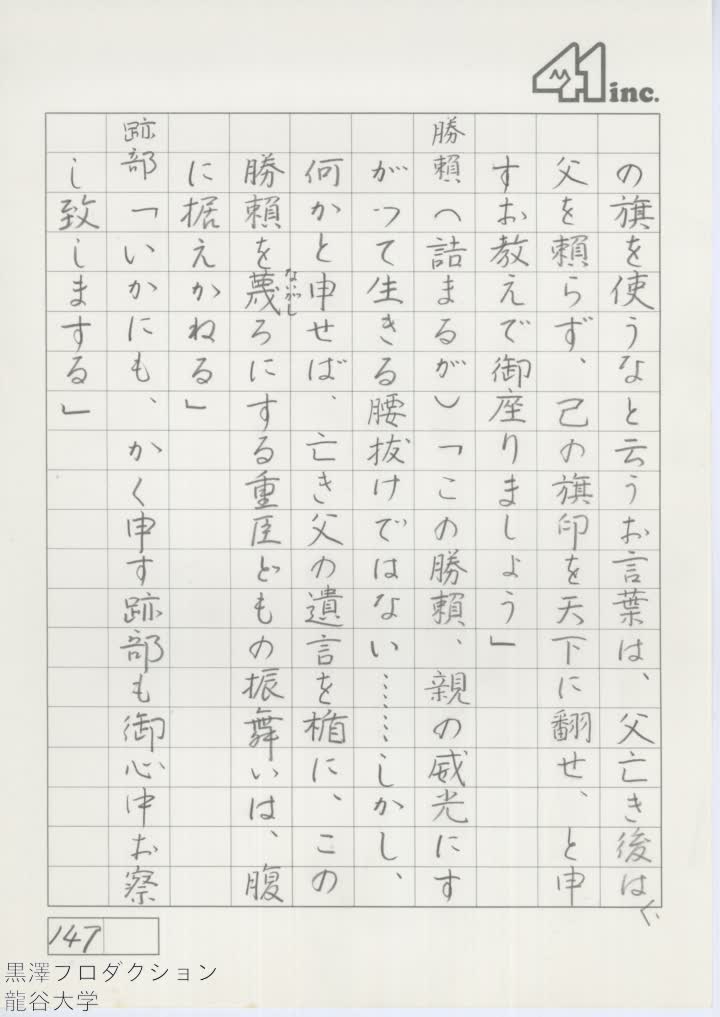 41 inc.
の旗を使うなと云うお言葉は、父亡き後は
父を頼らず、己の旗印を天下に翻せ、と申
すお教えで御座りましょう」
勝頼(詰まるが)「この勝頼、親の威光にす
がって生きる腰抜けではない……しかし、
何かと申せば、亡き父の遺言を楯に、この
勝頼を蔑ろにする重臣どもの振舞いは、腹
ないがし
に据えかねる」
跡部「いかにも、かく申す跡部も御心中お察
し致しまする」
147
黒澤プロダクション
龍谷大学